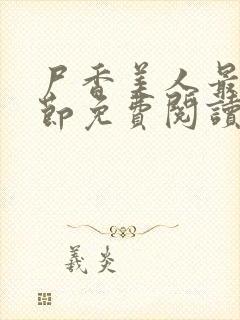 尸香美人最
節免費閱讀
義炎